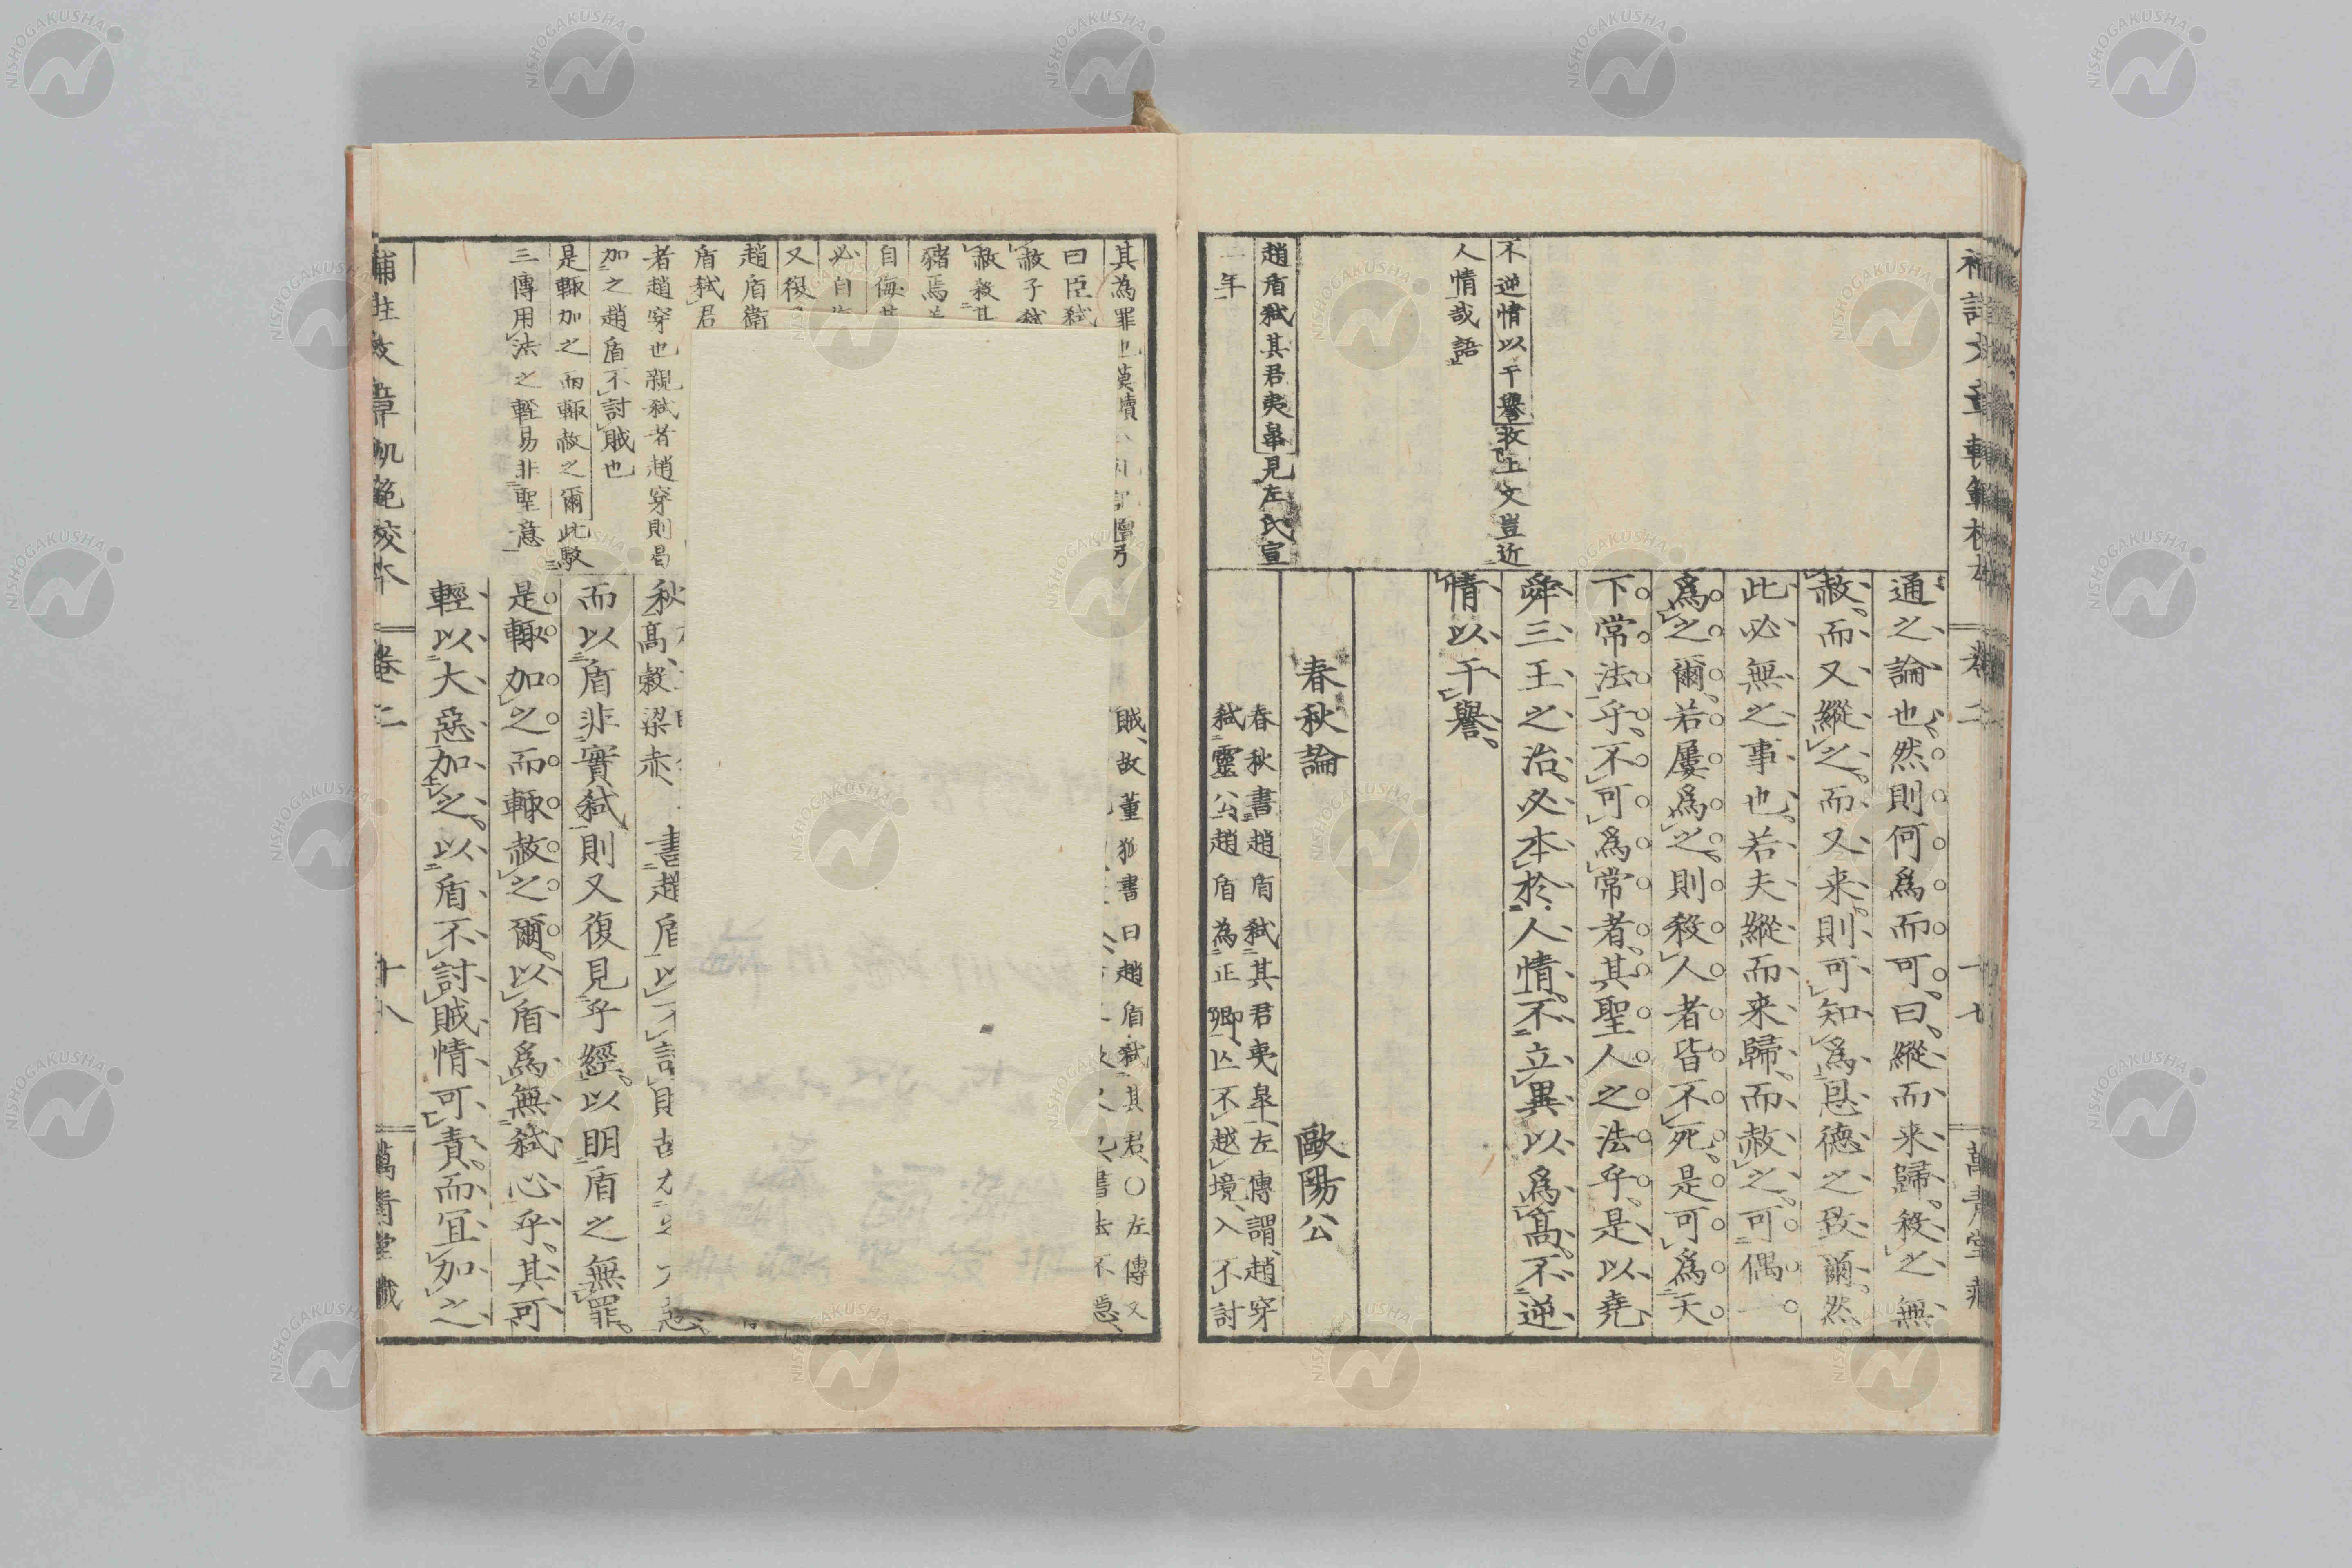 不逆情以干譽收上文豈近
人情哉語
趙盾弑其君夷皋見左氏宣
二年
通之論也然則何爲而可曰縱而来歸殺之無
赦而又縱之而又来則可知爲恩德之致爾然
此必無之事也若夫縱而来歸而赦之可偶一
爲之爾若屢爲之則殺人者皆不死是可爲天
下常法乎不可爲常者其聖人之法乎是以堯
舜三王之治必本於人情不立異以爲高不逆
情以干譽
春秋論 歐陽公
春秋書趙盾弑其君夷皋左傳謂趙穿
弑靈公趙盾為正卿亾不越境入不討
其為罪也
曰臣弑
赦子弑
赦殺其
豬焉
自侮其
必自
又復
趙盾衛
盾弑君
者趙穿也親弑者趙穿則曷
加之趙盾不討賊也
是輙加之而輙赦之爾此駁
三傳用法之輕易非聖意
賊故董狐書曰趙盾弑其君〇左傳又
書法不隱
秋高穀梁赤
書趙盾以
而以盾非實弑則又復見乎經以明盾之無罪
是輙加之而輙赦之爾以盾爲無弑心乎其可
輕以大惡加之以盾不討賊情可責而宜加之
補註文章軌範校本 卷二 十八 萬青堂藏